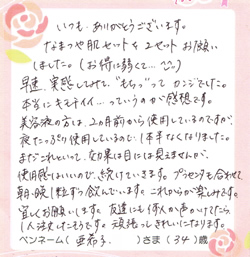 いつも ありがとうございます。
なまつや肌セットを2セットお願い
しました。(お得に弱くて…^^;)
早速、実感してみて、"もちっ"って カンジでした。
本当にキモチイイ…っていうのが感想です。
美容液の方は、2ヵ月前から使用しているのですが、
夜たっぷり使用しているので、1本半なくなりました。
まだこれといって、効果は目には見えませんが、
使用感はいいので、続けていきます。プラセンタも合わせて
朝・晩1粒ずつ飲んでいます。これからが楽しみです。
宜しくお願いします。友達にも何人か声かけてたら、
1人注文したそうです。頑張ってきれいになります。
ペンネーム( 亜希子 )さま(34)歳